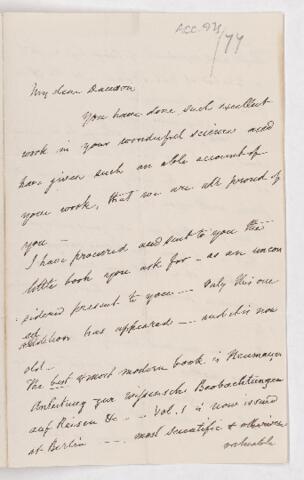 ACC. 9
/77
My dear Dawson
You have done such excellent
work in your wonderful science and
have given such an able account of
your work, that we are all proud of
you —
I have procured and sent to you the
little book you ask for — as an uncon
sidered present to you — Only this one
edition has appeared — and it is now
old —
The best & most modern book is Neumayer
Anleitung zur wissensch Beobachtungen
auf Reisen &c — Vol. 1 is now issued
at Berlin — most scientific & otherwise
valuable